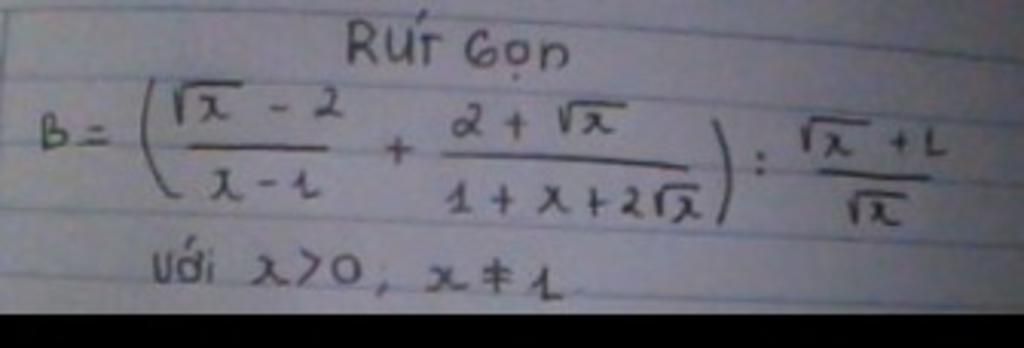 RÚT GỌN
B = (\frac{\sqrt{x} - 2}{x - 1} + \frac{2 + \sqrt{x}}{1 + x + 2\sqrt{x}}) : \frac{\sqrt{x} + 1}{\sqrt{x}}
với x > 0, x ≠ 1